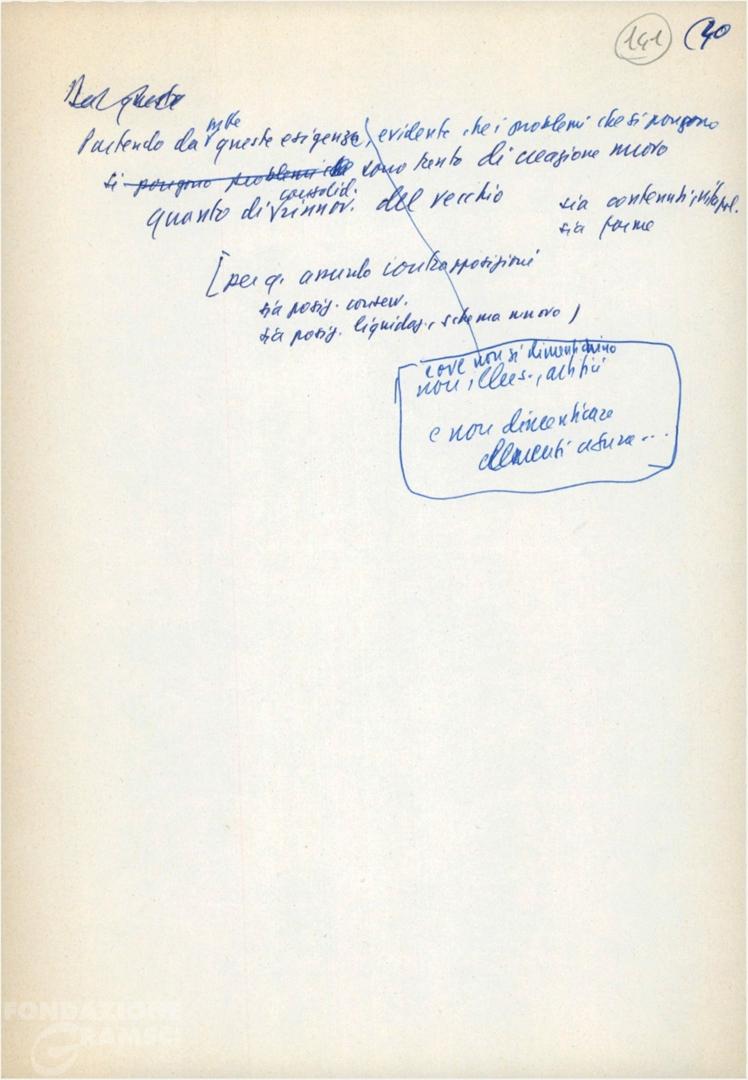 141 40
Partendo da queste esigenze, evidente che i problemi che si pongono
si pongono problemi che sono tanto di creazione nuovo
consolid.
quanto di rinnov. del vecchio
sia contenuti, vita pol.
sia forme
[per q. assurdo contrapposizioni
sia posiz. conserv.
sia posiz. liquidaz., schema nuovo)
cove non si dimentichino
non, artifici
e non dimenticare
elementi
FONDAZIONE
GRAMSCI